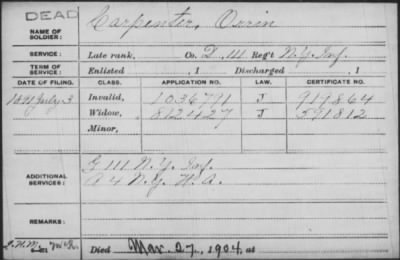 DEAD
NAME OF SOLDIER: Carpenter, Orrin
SERVICE: Late rank, Co. D, 111 Reg't N.Y. Inf.
TERM OF SERVICE: Enlisted , 1 Discharged , 1
DATE OF FILING. CLASS. APPLICATION NO. LAW. CERTIFICATE NO.
1891 July 3 Invalid, 1036791 J 919864
Widow, 812427 J 591812
Minor,
ADDITIONAL SERVICES: G 111 N.Y. Inf.
A 4 N.Y. H.A.
REMARKS:
Died Mar. 27, 1904, at